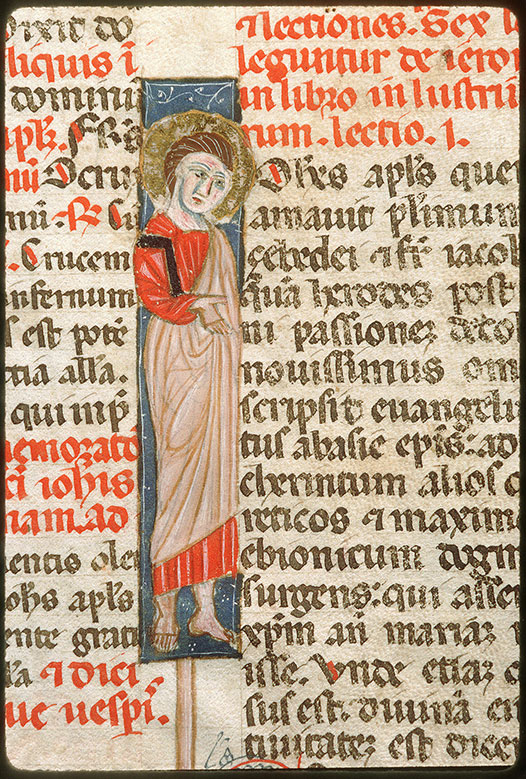 dixit do
liquis i
domini
apl's. Fr̄s
nū Ocru
nū. R Cu
Crucem
infernum
s est potē
tia alla.
qui inp̄
emorato
ci ioh̄is
nam. ad
entis olei
ohs apl's
ente grati
la. ⁊ dici
ue uesp̄i.
⁊ lectiones. Sex l
leguntur de iero
in libro inlustriū
rum. lectio. 1.
Ioh̄es apl's que
amauit pl̄imum
cebedei ⁊ fr̄ iacol
quā herodes post
ni passionez decol
nouissimus om
scripsit euangeli
tus abasie ep̄is: ad
cherintum alios
reticos ⁊ maxim
ebionicum dogm
surgens: qui asse
xp̄m an̄ mariaz
isse. Vnde etiaz
sus est. diuinā
tiuitatez est dicer